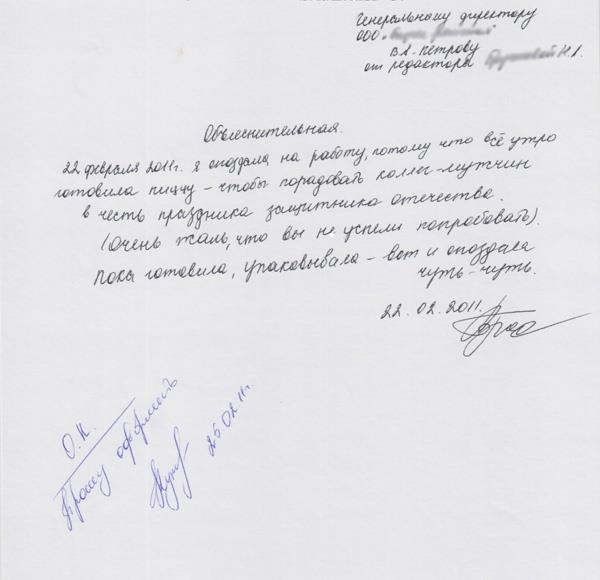 Генеральному директору
ООО „
В.А. Петрову
от редактора Н.А.
Объяснительная.
22 февраля 2011г. я опоздала на работу, потому что всё утро
готовила пиццу – чтобы порадовать коллег-мужчин
в честь праздника защитника отечества.
(Очень жаль, что вы не успели попробовать).
Пока готовила, упаковывала – вот и опоздала
чуть-чуть.
22.02.2011.
О.К.
Прошу оформить
25.02.11г.